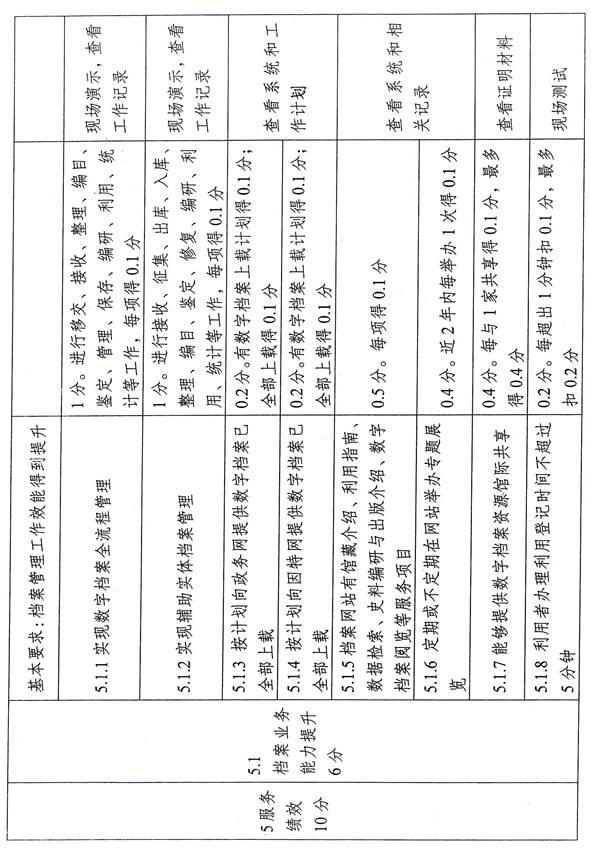 5 服务
绩效
10 分
5.1
档案业务
能力提升
6 分
基本要求：档案管理工作效能得到提升
5.1.1 实现数字档案全流程管理
1 分。进行移交、接收、整理、编目、
鉴定、管理、保存、编研、利用、统
计等工作，每项得 0.1 分
现场演示，查看
工作记录
5.1.2 实现辅助实体档案管理
1 分。进行接收、征集、出库、入库、
整理、编目、鉴定、修复、编研、利
用、统计等工作，每项得 0.1 分
现场演示，查看
工作记录
5.1.3 按计划向政务网提供数字档案已
全部上载
0.2 分。有数字档案上载计划得 0.1 分；
全部上载得 0.1 分
5.1.4 按计划向因特网提供数字档案已
全部上载
0.2 分。有数字档案上载计划得 0.1 分；
全部上载得 0.1 分
查看系统和工
作计划
5.1.5 档案网站有馆藏介绍、利用指南、
数据检索、史料编研与出版介绍、数字
档案阅览等服务项目
0.5 分。每项得 0.1 分
5.1.6 定期或不定期在网站举办专题展
览
0.4 分。近 2 年内每举办 1 次得 0.1 分
查看系统和相
关记录
5.1.7 能够提供数字档案资源馆际共享
0.4 分。每与 1 家共享得 0.1 分，最多
得 0.4 分
查看证明材料
5.1.8 利用者办理利用登记时间不超过
5 分钟
0.2 分。每超出 1 分钟扣 0.1 分，最多
扣 0.2 分
现场测试